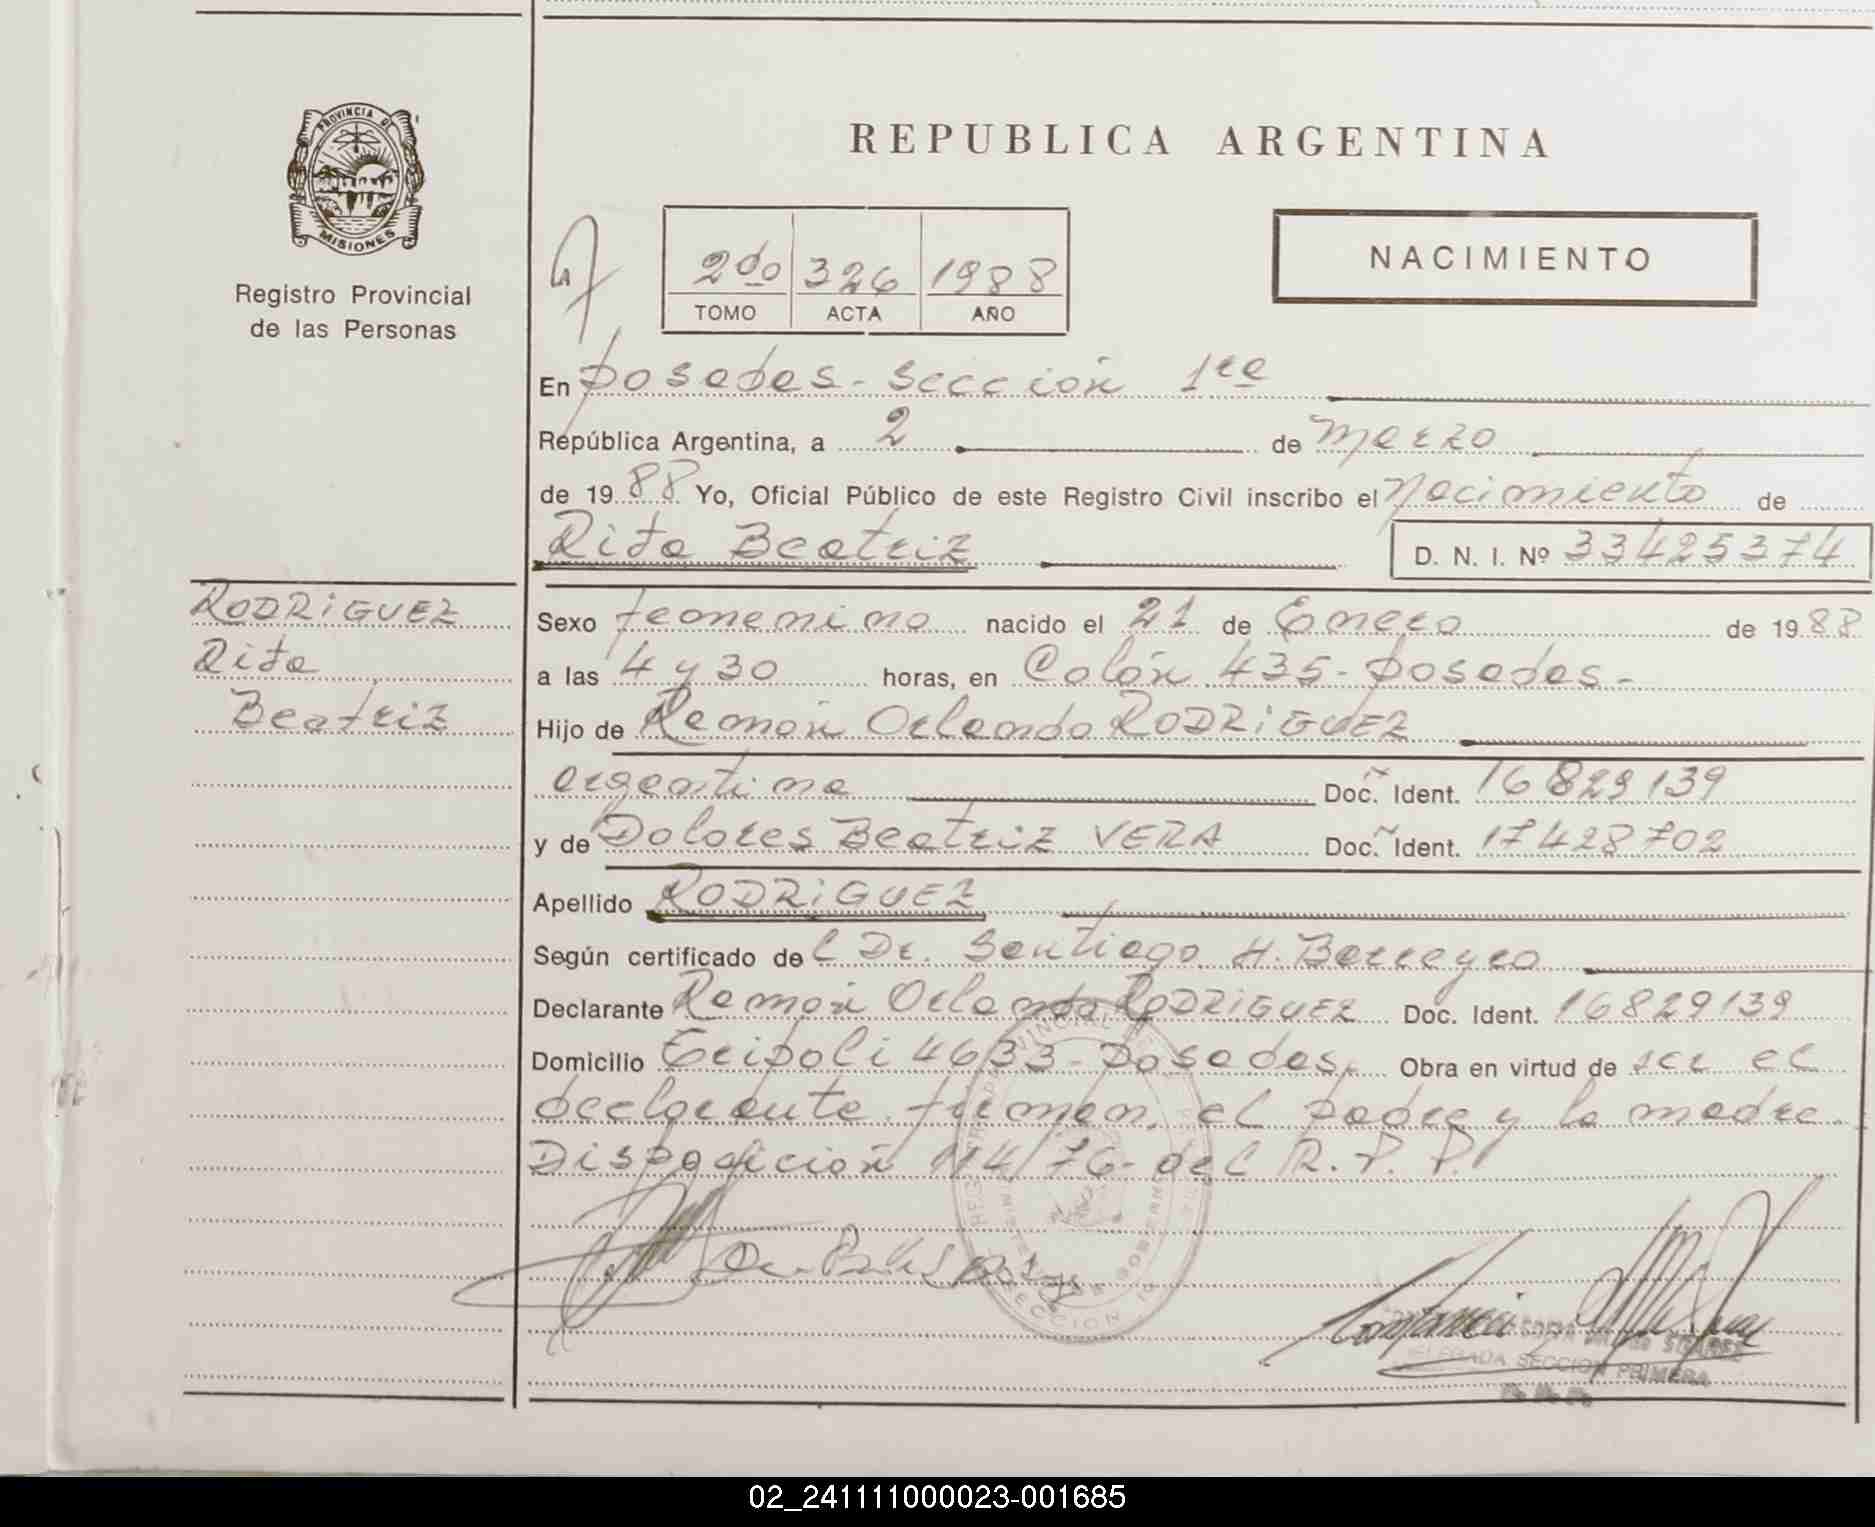 PROVINCIA DE
MISIONES
Registro Provincial
de las Personas
REPUBLICA ARGENTINA
2do 326 1988
TOMO ACTA AÑO
NACIMIENTO
En Posadas - Sección 1ra
República Argentina, a 2 de Marzo
de 1988 Yo, Oficial Público de este Registro Civil inscribo el Nacimiento de
Rita Beatriz D. N. I. Nº 33425374
RODRIGUEZ
Rita
Beatriz
Sexo femenino nacido el 21 de Enero de 1988
a las 4 y 30 horas, en Colón 435 - Posadas -
Hijo de Ramón Orlando RODRIGUEZ
argentina Doc. Ident. 16829139
y de Dolores Beatriz VERA Doc. Ident. 17428702
Apellido RODRIGUEZ
Según certificado del Dr. Santiago H. Barreyro
Declarante Ramón Orlando RODRIGUEZ Doc. Ident. 16829139
Domicilio Tripoli 4633 - Posadas. Obra en virtud de ser el
declarante. firman, el padre y la madre.
Disposición 114/76 - del R. P. P.
SECCION 1a
SUAREZ
DELEGADA SECCION PRIMERA
02_241111000023-001685